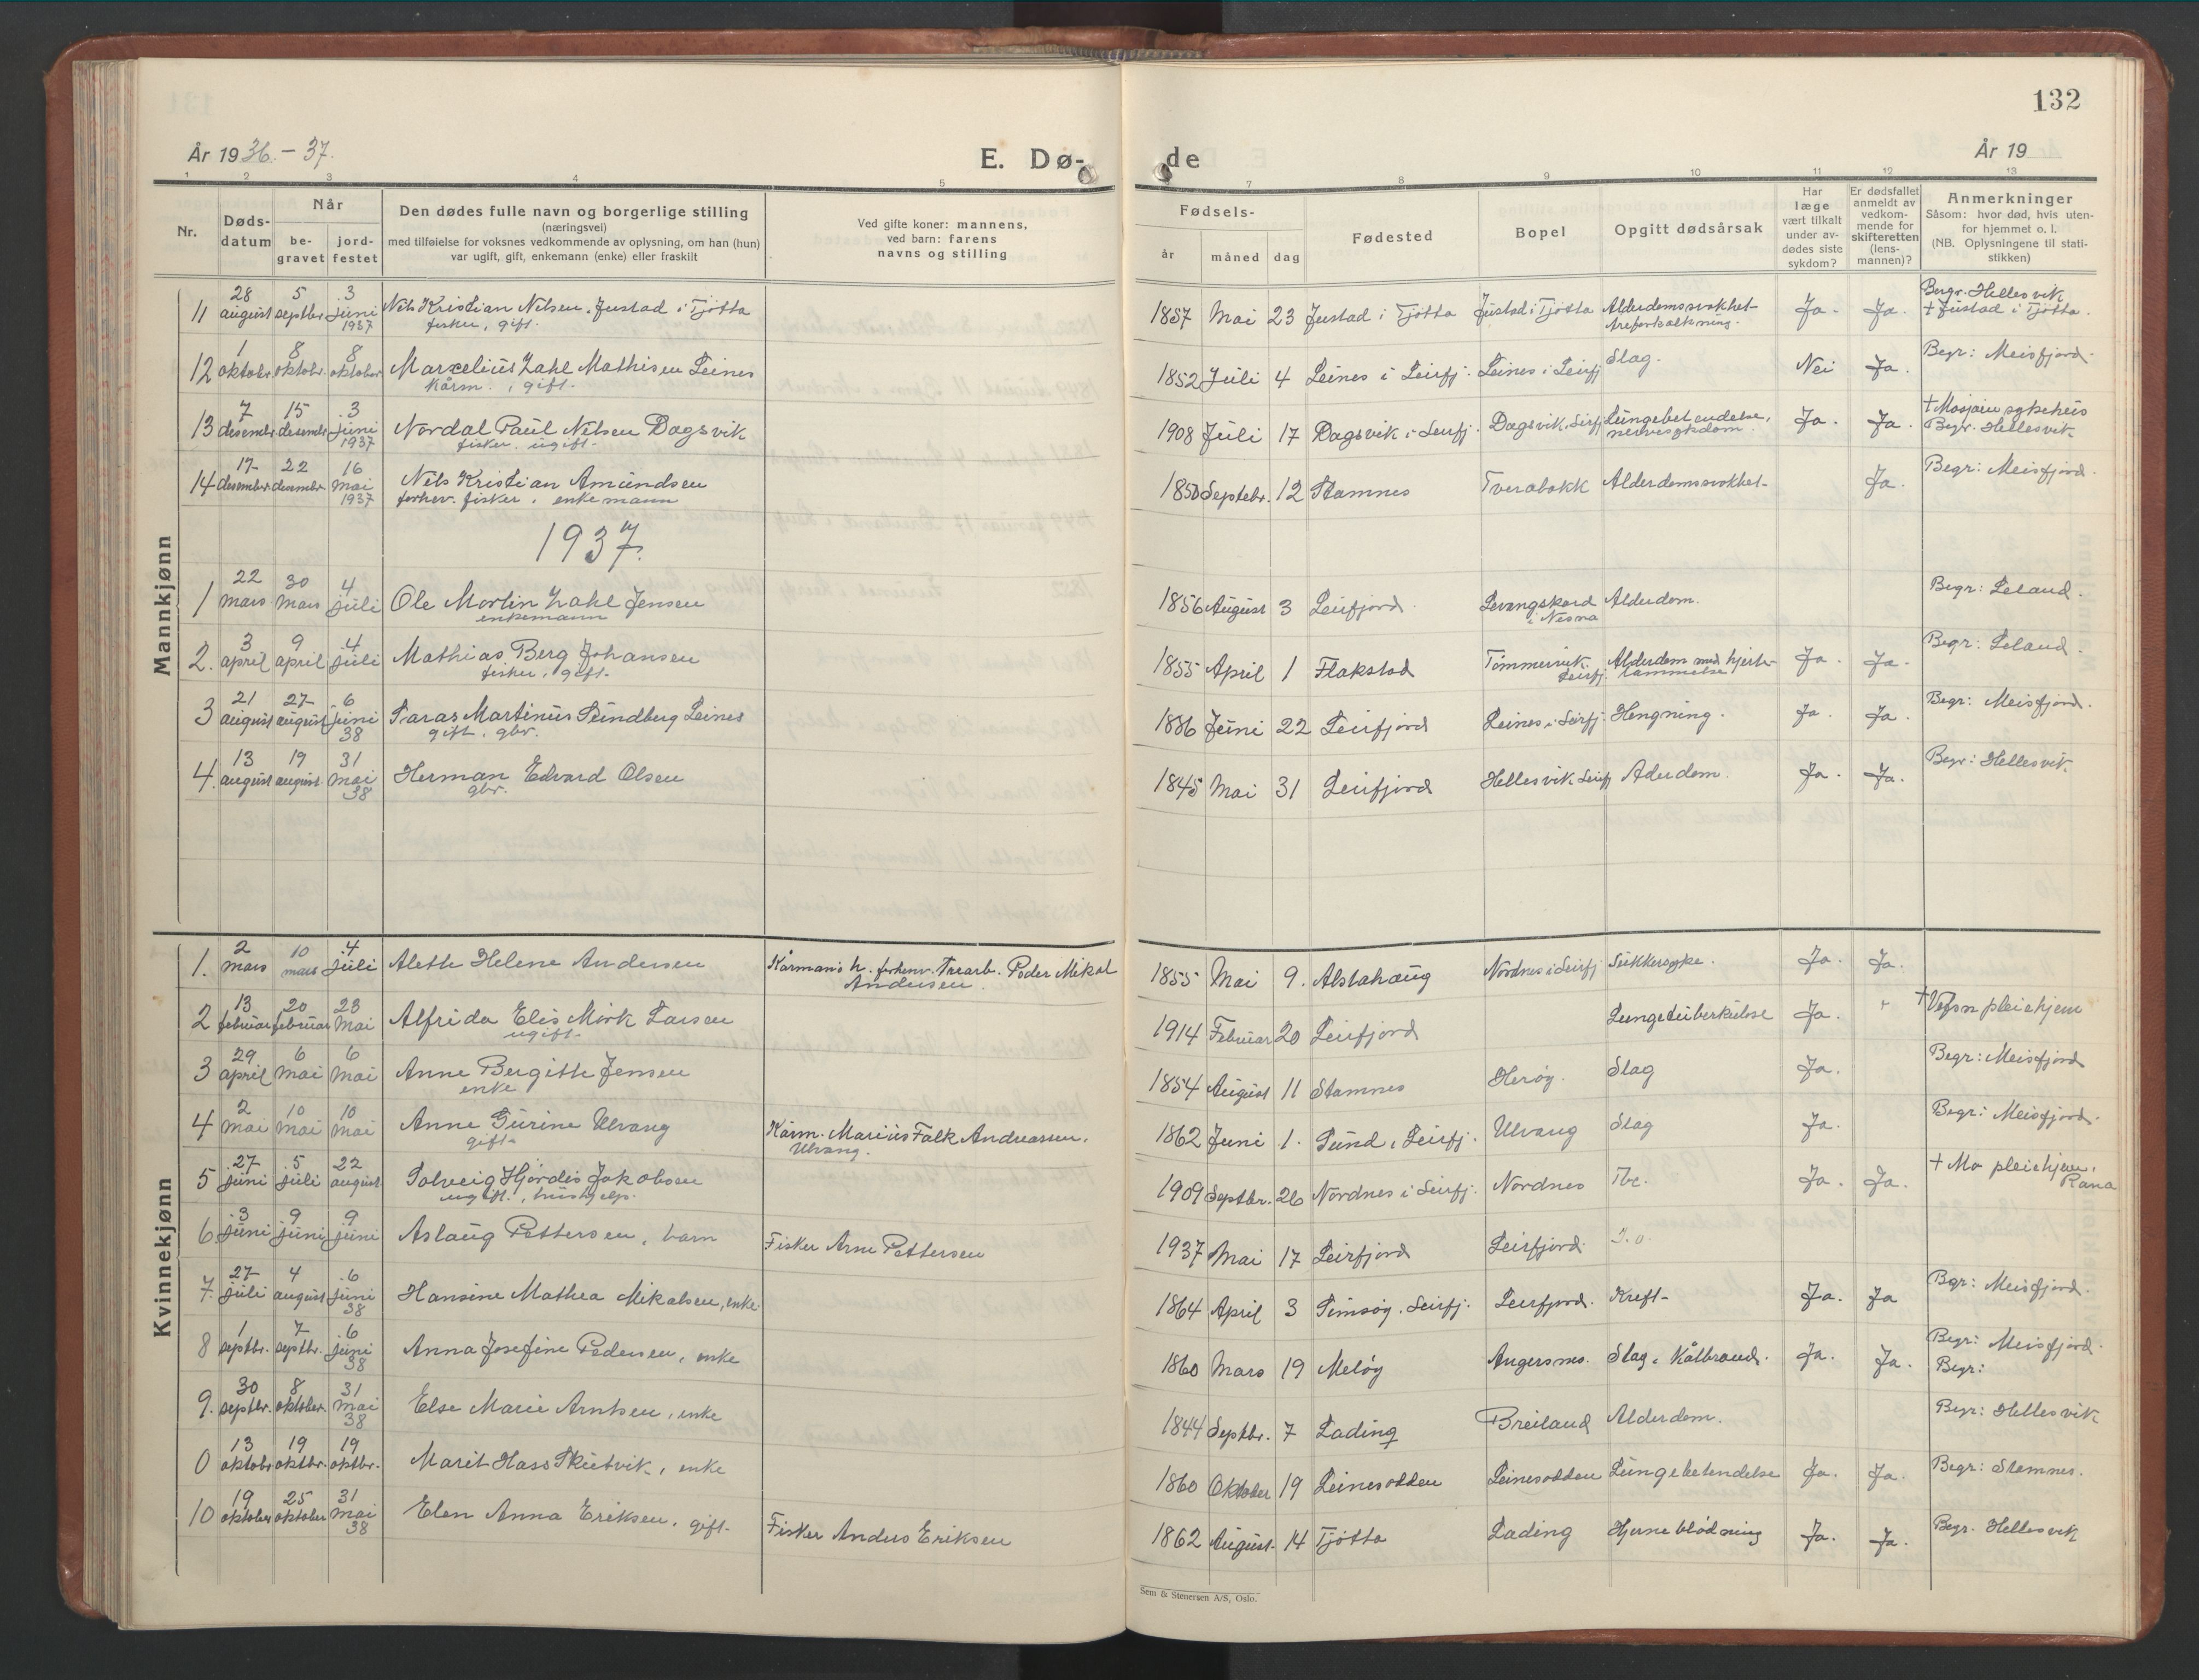 132
År 1936. – 37.
E. Dø-
de
År 19
1 2 3 4 5 7 8 9 10 11 12 13
Nr.
Døds-
datum
Når
be-
gravet
jord-
festet
Den dødes fulle navn og borgerlige stilling
(næringsvei)
med tilføielse for voksnes vedkommende av oplysning, om han (hun)
var ugift, gift, enkemann (enke) eller fraskilt
Ved gifte koner: mannens,
ved barn: farens
navns og stilling
Fødsels-
år måned dag
Fødested
Bopel
Opgitt dødsårsak
Har
læge
vært tilkalt
under av-
dødes siste
sykdom?
Er dødsfallet
anmeldt av
vedkom-
mende for
skifteretten
(lens-
mannen)?
Anmerkninger
Såsom: hvor død, hvis uten-
for hjemmet o. l.
(NB. Oplysningene til stati-
stikken)
Mannkjønn
11 28 august 5 septbr. 3 juni 1937 Nils Kristian Nilsen. Justad i Tjøtta
fisker, gift.
1857 Mai 23 Justad i Tjøtta Justad i Tjøtta Alderdomssvakhet
Areforkalkning. Ja. Ja. Begr. Hellesvik
+ Justad i Tjøtta.
12 1 oktobr. 8 oktobr. 8 oktober Marcelius Zahl Mathisen Leines
Kårm., gift.
1852 Juli 4 Leines i Leirfj. Leines i Leirfj Slag. Nei Ja. Begr: Meisfjord.
13 7 desembr. 15 desembr. 3 juni 1937 Nordal Paul Nilsen Dagsvik
fisker. ugift.
1908 Juli 17 Dagsvik i Leirfj. Dagsvik, Leirfj Lungebetendelse,
nervesykdom. Ja. Ja. + Mosjøen sykehus
Begr. Hellesvik
14 17 desember 22 desembr. 16 mai 1937 Nils Kristian Amundsen
forhev. fisker, enkemann
1850 Septebr. 12 Stamnes Tverabakk Alderdomssvakhet Ja. Begr: Meisfjord.
1937.
1 22 mars 30 mars 4 juli Ole Mortin Zahl Jensen
enkemann
1856 August 3 Leirfjord. Levangskard
i Nesna Alderdom. Begr: Leland.
2. 3 april 9 april 4 juli Mathias Berg Johansen
fisker, gift.
1855 April 1 Flakstad Tømmervik.
Leirfj. Alderdom med hjerte-
lammelse Ja. Ja. Begr: Leland.
3 21 august 27 august 6 juni 38 Laras Martinus Sundberg Leines
gift. gbr.
1886 Juni 22 Leirfjord Leines i Leirfj. Hengning. Ja. Ja. Begr: Meisfjord.
4. 13 august 19 august 31 mai 38 Herman Edvard Olsen
gbr.
1845 Mai 31 Leirfjord Hellesvik Leirfj Aderdom. Ja. Ja. Begr: Hellesvik.
Kvinnekjønn
1. 2 mars 10 mars 4 juli Aleth Helene Andersen Kårmanns h. forhenv. Trearb. Peder Mikal
Andersen.
1855 Mai 9. Alstahaug Nordnes i Leirfj Sukkersyke. Ja. Ja.
2 13 februar 20 februar 23 mai Alfrida Elis Mørk Larsen
ugift.
1914 Februar 20 Leirfjord Lungetuberkulose Ja. " + Vefsn pleiehjem
3 29 april 6 mai 6 mai Anne Bergitte Jensen
enke
1854 August 11 Stamnes Herøy. Slag Ja. Begr: Meisfjord
4 2 mai 10 mai 10 mai Anne Gurine Ulvang
gift. Kårm. Marius Falk Andreassen,
Ulvang.
1862 Juni 1. Sund, Leirfj. Ulvang Slag Ja. Begr: Meisfjord.
5 27 juni 5 juli 22 august Solveig Hjørdis Jakobsen
ugift., hushjelp.
1909 Septbr. 26 Nordnes i Leirfj. Nordnes Tbc. Ja. Ja. + Mo pleiehjem,
Rana
6. 3 juni 9 juni 9 juni Aslaug Pettersen, barn Fisker Arne Pettersen
1937 Mai 17 Leirfjord Leirfjord.
7. 27 juli 4 august 6 juni 38 Hansine Mathea Mikalsen, enke.
1864 April 3 Simsøy. Leirfj. Leirfjord. Kreft. Ja. Ja Begr: Meisfjord.
8 1 septbr. 7 septbr. 6 juni 38 Anna Josefine Pedersen, enke
1860 Mars 19 Meløy Angersnes. Slag, Kålbrand. Ja. Ja. Begr: Meisfjord.
Begr:
9. 30 septbr. 8 oktober. 31 mai 38 Else Marie Arntsen, enke
1844 Septbr. 7 Lading Breiland Alderdom. Begr: Hellesvik
0 13 oktobr 19 oktbr. 19 oktbr. Marit Hass Skutvik, enke
1860 Oktober 19 Leinesodden Leinesodden Lungebetendelse Ja. Ja. Begr: Stamnes.
10 19 oktober 25 oktober 31 mai 38 Elen Anna Eriksen, gift. Fisker Anders Eriksen
1862 August. 14 Tjøtta Lading Hjerneblødning Ja. Ja. Begr. Hellesvik
Sem & Stenersen A/S, Oslo.